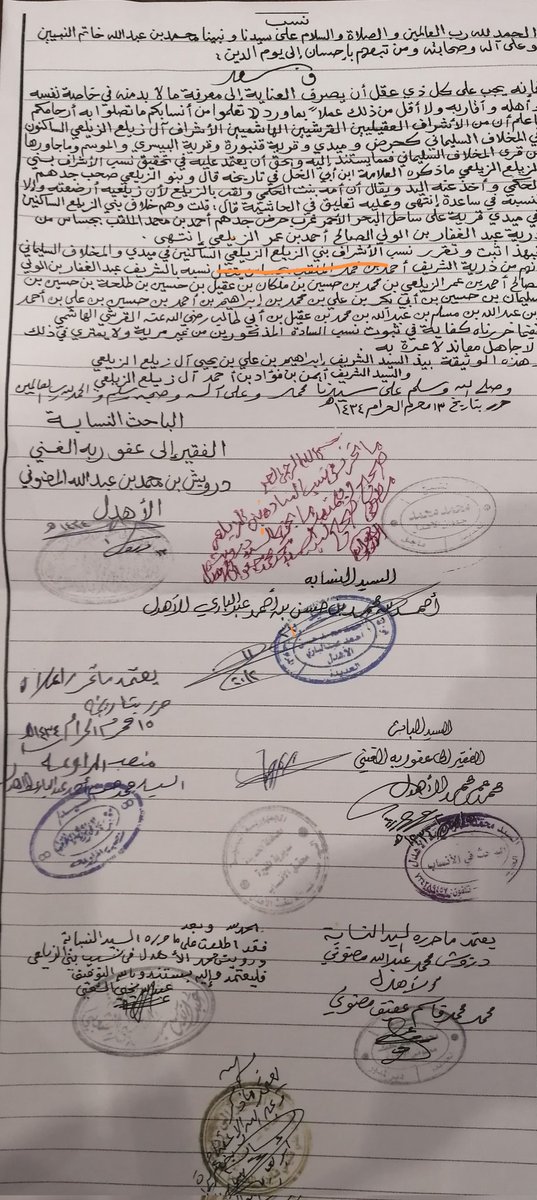 نسب
الحمد لله رب العالمين و الصلاة و السلام على سيدنا و نبينا محمد بن عبد الله خاتم النبيين
وعلى آله وصحابته ومن تبعهم بإحسان إلى يوم الدين
و بعد
فإنه يجب على كل ذي عقل أن يصرف العناية إلى معرفة ما لا بد منه في خاصة نفسه
وأهله و أقاربه ولا أقل من ذلك عملاً بما ورد تعلموا من أنسابكم ما تصلوا به أرحامكم
فاعلم أن من الأشراف العقيليين القرشيين الهاشميين الأشراف آل زيلع الزيلعي الساكنون
في المخلاف السليماني كحرض و ميدي و قرية قنبورة وقرية البيسري و الموسم وما جاورها
من قرى المخلاف السليماني فمما يستند إليه ويحق أن يعتمد عليه في تحقيق نسب الأشراف بني
الزيلع الزيلعي ما ذكره العلامة ابن أبي الخل في تاريخه قال و بنو الزيلعي صحب جدهم
الحكمي و أخذ عنه اليد ويقال أن أمه بنت الحكمي و لقب بالزيلع لأن زيلعيه أرضعته وإلا
فنسبه في ساعدة إنتهى وعليه تعليق في الحاشية قال: قلت وهم خلاف بني الزيلع الساكنين
في ميدي قرية على ساحل البحر الأحمر غرب حرض جدهم أحمد بن محمد الملقب بجساس من
ذرية عبد الغفار بن الولي الصالح أحمد بن عمر الزيلعي إنتهى.
فبهذا اثبت و تقرير نسب الأشراف بني الزيلع الزيلعي الساكنين في ميدي و المخلاف السليماني
أنهم من ذرية الشريف أحمد بن محمد نسبه بالشريف عبد الغفار بن الولي
الصالح أحمد بن عمر الزيلعي بن محمد بن حسين بن ملكان بن عقيل بن حسين بن طلحة بن حسين بن
سليمان بن حسين بن أبي بكر بن علي بن محمد بن إبراهيم بن أحمد بن حسين بن علي بن أحمد
بن عبد الله بن مسلم بن عبد الله بن محمد بن عقيل بن أبي طالب رضي الله عنه القرشي الهاشمي
فيما حررناه كفاية في ثبوت نسب السادة المذكورين من غير مرية ولا يمتري في ذلك
إلا جاهل معاند لا عبرة به
و هذه الوثيقة بيد السيد الشريف إبراهيم بن علي بن يحيى آل زيلع الزيلعي
والسيد الشريف أيمن بن فؤاد بن أحمد آل زيلع الزيلعي
وصلى الله وسلم على سيدنا محمد و على آله وصحبه وسلم و الحمد لله رب العالمين
حرر بتاريخ ١٣ محرم الحرام ١٤٣٤هـ
الباحث النسابة
الفقير إلى عفو ربه الغني
درويش بن محمد بن عبد الله المضوني
الأهدل
السيد النسابه
أحمد بن محمد بن حسن بن أحمد عبد الباري الأهدل
يعتمد ما حرر اعلاه
حرر بتاريخ
١٥ محرم الحرام ١٤٣٤هـ
منصب المراوعة
السيد الباحث
الفقير إلى عفو ربه الغني
محمد عمر محمد الأهدل
الحمد لله وبعد
فقد اطلعت على ما حرره السيد النسابة
درويش محمد الأهدل في نسب بني الزيلعي
فليعتمد وإليه يستند وبالله التوفيق
يعتمد ما حرره السيد النسابة
درويش محمد عبد الله مضوني
الأهدل
محمد محمد قاسم عقيق مضوني